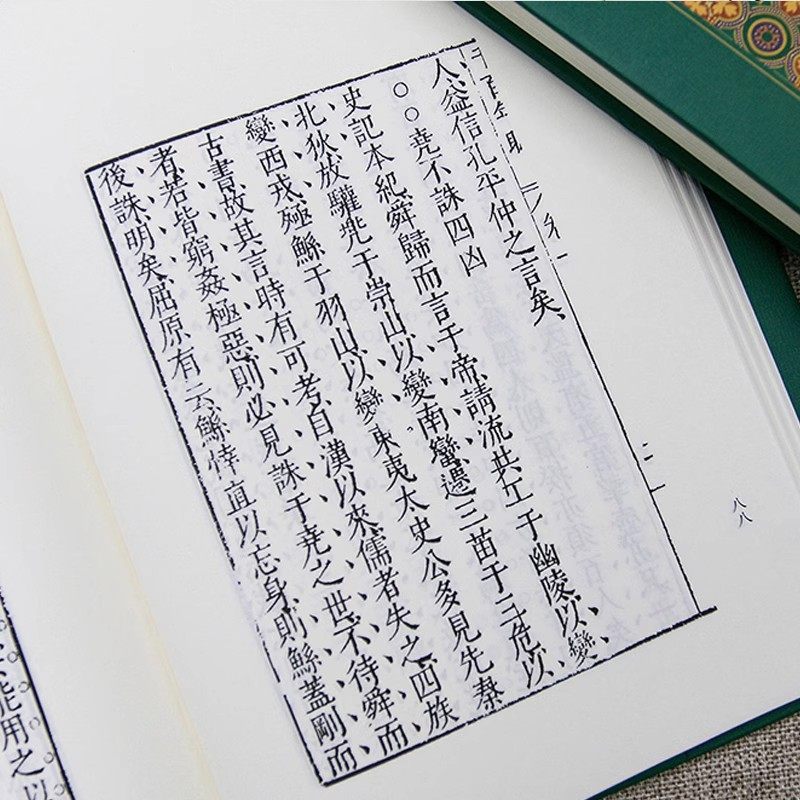 人益信孔平仲之言矣、
○○堯不誅四凶
史記本紀舜歸而言于帝請流共工于幽陵以變
北狄放驩兜于崇山以變南蠻遷三苗于三危以
變西戎殛鯀于羽山以變東夷太史公多見先秦
古書故其言時有可考自漢以來儒者失之四族
者若皆窮姦極惡則必見誅于堯之世不待舜而
後誅明矣屈原有云鯀悻直以忘身則鯀蓋剛而
八八
能用之以